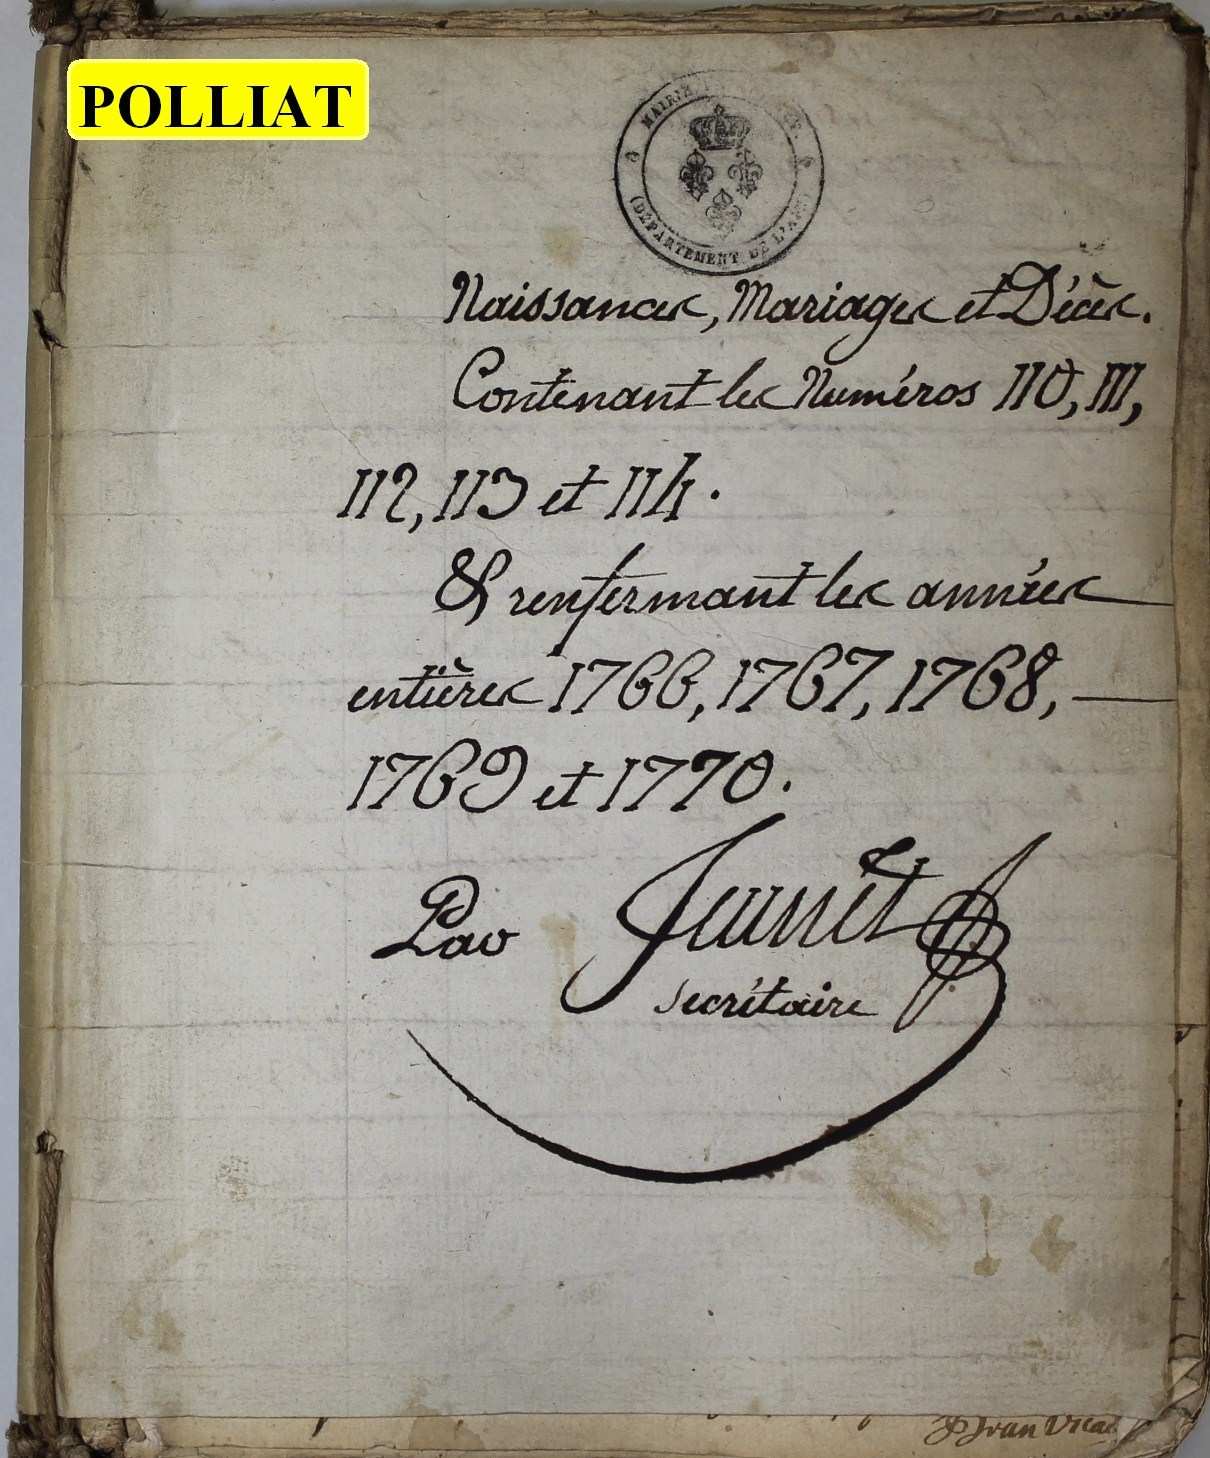 POLLIAT
MAIRIE
(DÉPARTEMENT DE L'AIN)
Naissances, Mariages et Décès.
Contenant les Numéros 110, 111,
112, 113 et 114.
& renfermant les années
entières 1766, 1767, 1768,
1769 et 1770.
Par
secrétaire